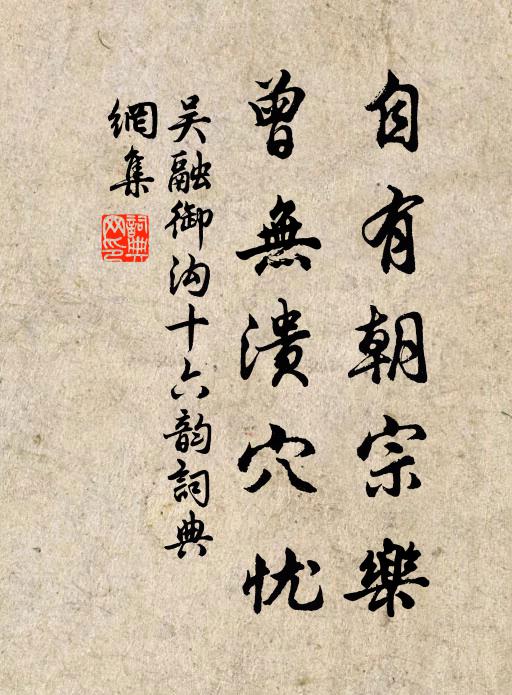 自有朝宗樂
曾無潰穴忧
吴融御沟十六韵詞典
網集
詞典網印